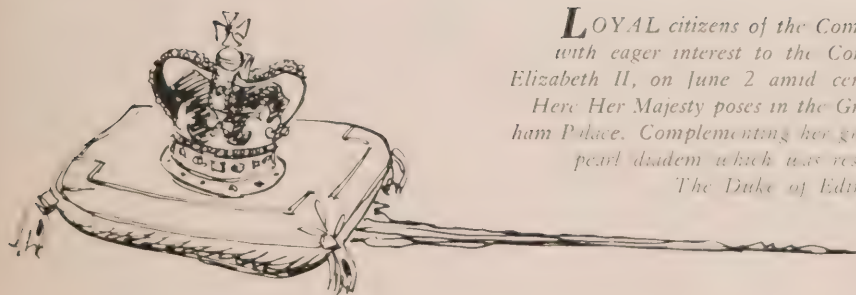 LOYAL citizens of the Com
with eager interest to the Cor
Elizabeth II, on June 2 amid cer
Here Her Majesty poses in the Gr
ham Palace. Complementing her g
pearl diadem which was res
The Duke of Edi